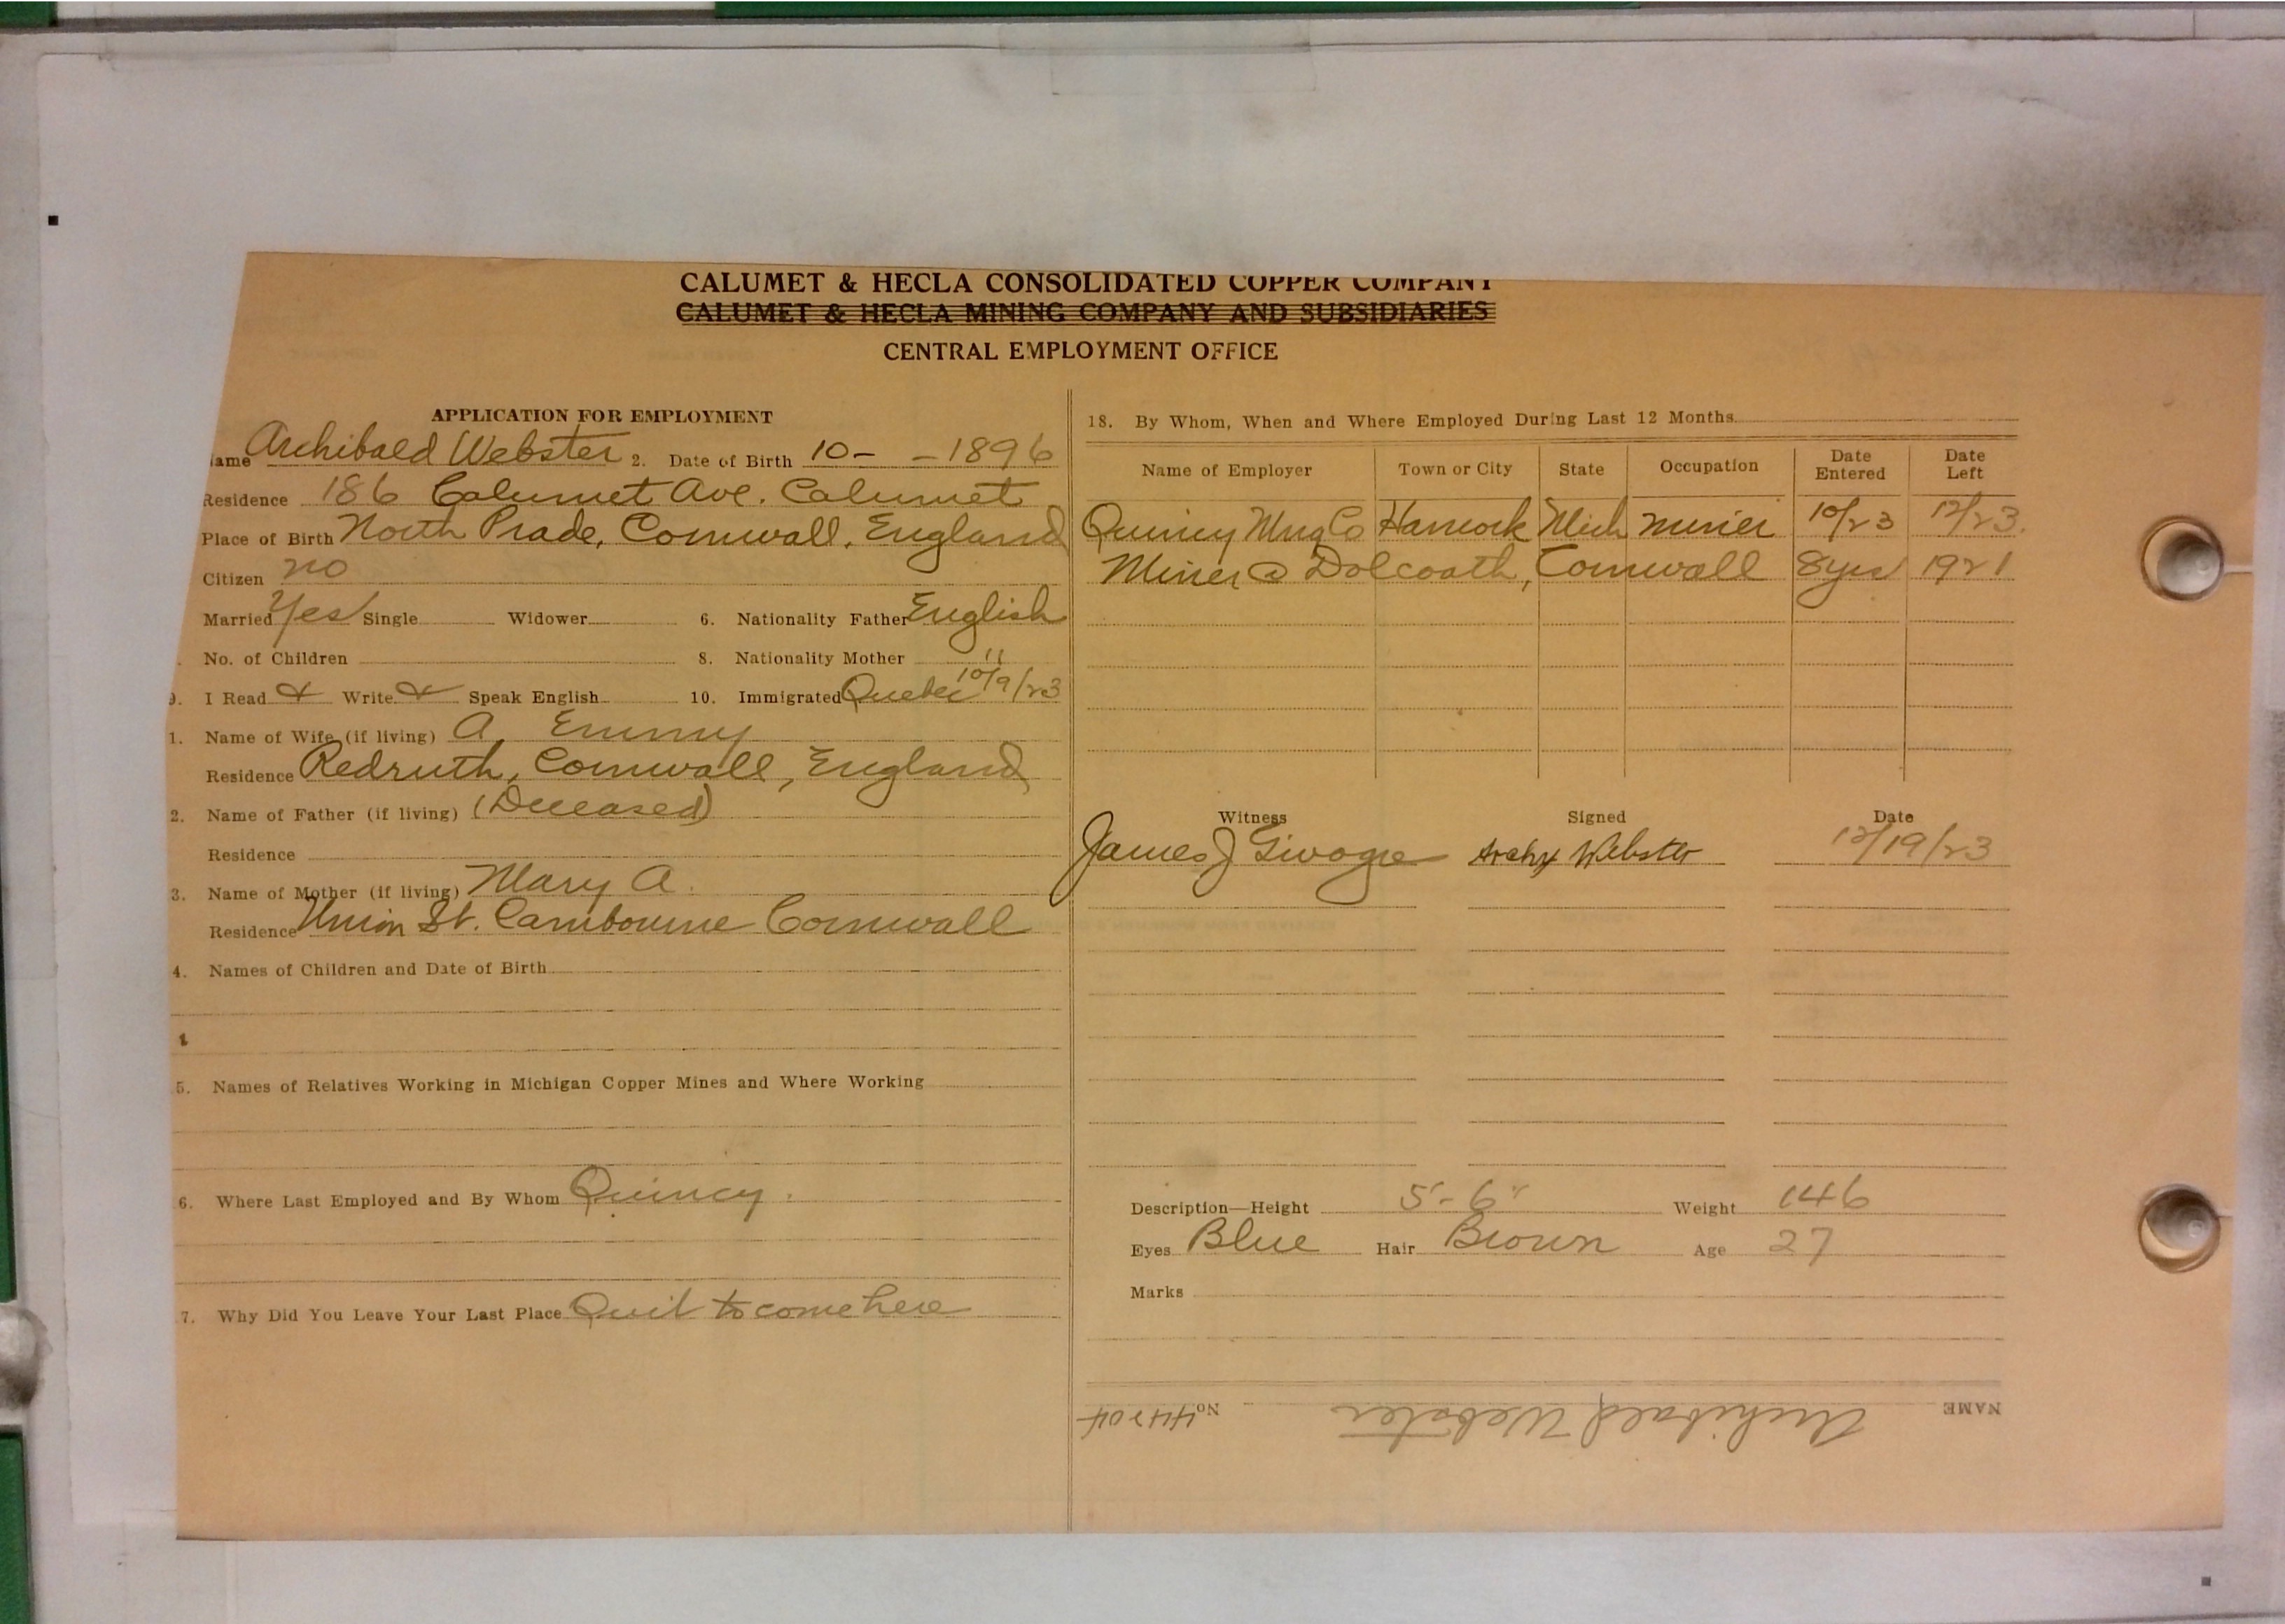 CALUMET & HECLA CONSOLIDATED COPPER COMPANY
CALUMET & HECLA MINING COMPANY AND SUBSIDIARIES
CENTRAL EMPLOYMENT OFFICE
APPLICATION FOR EMPLOYMENT
ame Archibald Webster 2. Date of Birth 10- -1896
Residence 186 Calumet Ave. Calumet
Place of Birth North Prade, Cornwall, England
Citizen no
Married Yes Single Widower 6. Nationality Father English
No. of Children 8. Nationality Mother "
9. I Read & Write & Speak English 10. Immigrated Quebec 10/9/23
1. Name of Wife (if living) A. Emmy
Residence Redruth, Cornwall, England
2. Name of Father (if living) (Deceased)
Residence
3. Name of Mother (if living) Mary A.
Residence Union St. Cambourne Cornwall
4. Names of Children and Date of Birth
5. Names of Relatives Working in Michigan Copper Mines and Where Working
6. Where Last Employed and By Whom Quincy.
7. Why Did You Leave Your Last Place Quit to come here
18. By Whom, When and Where Employed During Last 12 Months
Name of Employer Town or City State Occupation Date Entered Date Left
Quincy Mng Co Hancock Mich miner 10/23 12/23.
Miner @ Dolcoath, Cornwall 8 yrs 1921
Witness Signed Date
James J Webster 12/19/23
Description—Height 5'-6" Weight 146
Eyes Blue Hair Brown Age 27
Marks
NAME Archibald Webster No. 44204